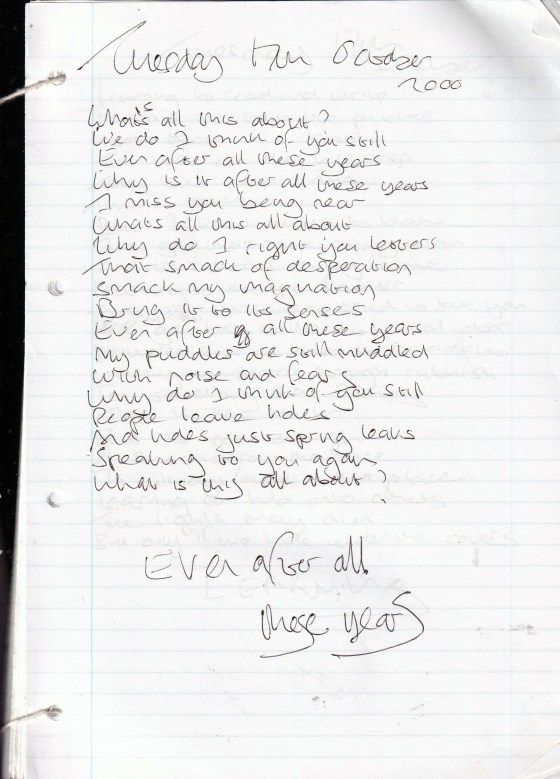 Tuesday 17th October
2000
What's all this about?
We do I think of you still
Even after all these years
Why is it after all these years
I miss you being near
Whats all this all about
Why do I right you letters
That smack of desperation
Smack my imagnation
Bring it to its senses
Even after all these years
My puddles are still muddled
With noise and fears
Why do I think of you still
People leave holes
And holes just spring leaks
Speaking to you again
What is this all about?
EVEN after all
these years